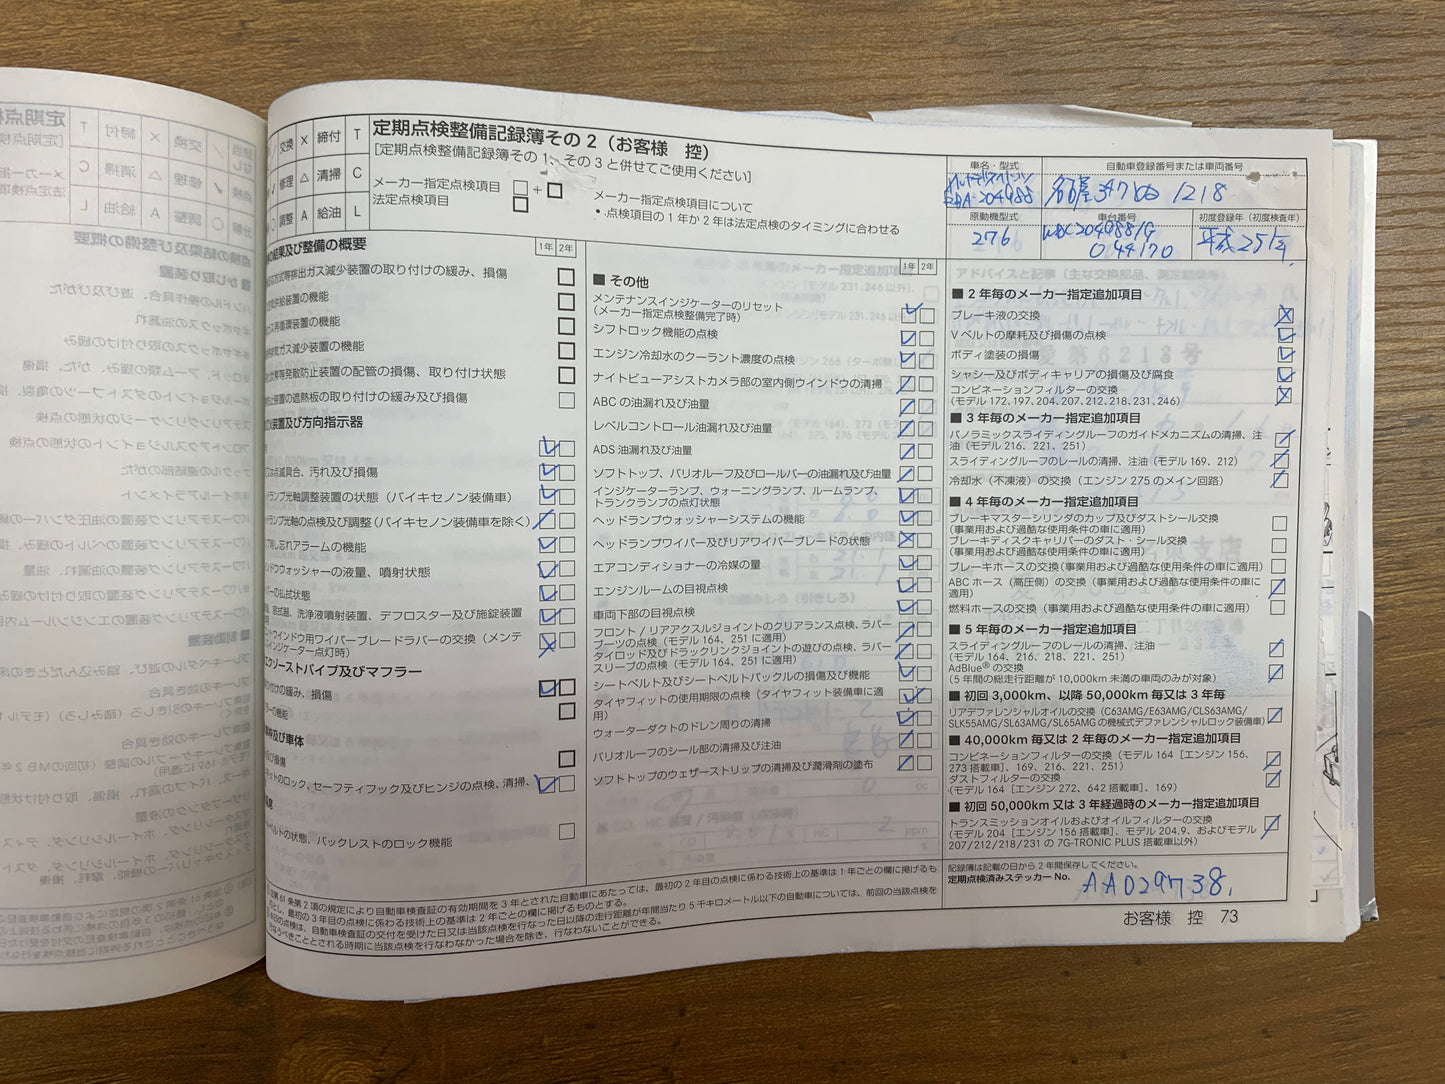 定期点検整備記録簿その2（お客様 控）
[定期点検整備記録簿その1、その3と併せてご使用ください]
交換 × 締付 T
修理 △ 清掃 C
調整 A 給油 L
メーカー指定点検項目 □+□
法定点検項目 □
メーカー指定点検項目について
• 点検項目の1年か2年は法定点検のタイミングに合わせる
車名・型式
自動車登録番号または車両番号
RBA-204988
1218
原動機型式
車台番号
初度登録年（初度検査年）
276
WDC2049881G
044170
平成25年
の結果及び整備の概要
1年 2年
排出ガス減少装置の取り付けの緩み、損傷
給装置の機能
環装置の機能
ガス減少装置の機能
発散防止装置の配管の損傷、取り付け状態
装置の遮熱板の取り付けの緩み及び損傷
装置及び方向指示器
点滅具合、汚れ及び損傷
ランプ光軸調整装置の状態（バイキセノン装備車）
ランプ光軸の点検及び調整（バイキセノン装備車を除く）
消し忘れアラームの機能
ドウォッシャーの液量、噴射状態
ーの払拭状態
窓拭器、洗浄液噴射装置、デフロスター及び施錠装置
トウインドウ用ワイパーブレードラバーの交換（メンテ
スインジケーター点灯時）
エグゾーストパイプ及びマフラー
付けの緩み、損傷
ラーの機能
及び車体
の損傷
ネットのロック、セーフティフック及びヒンジの点検、清掃、
ベルトの状態、バックレストのロック機能
1年 2年
■ その他
メンテナンスインジケーターのリセット
（メーカー指定点検整備完了時）
シフトロック機能の点検
エンジン冷却水のクーラント濃度の点検
ナイトビューアシストカメラ部の室内側ウインドウの清掃
ABC の油漏れ及び油量
レベルコントロール油漏れ及び油量
ADS 油漏れ及び油量
ソフトトップ、バリオルーフ及びロールバーの油漏れ及び油量
インジケーターランプ、ウォーニングランプ、ルームランプ、
トランクランプの点灯状態
ヘッドランプウォッシャーシステムの機能
ヘッドランプワイパー及びリアワイパーブレードの状態
エアコンディショナーの冷媒の量
エンジンルームの目視点検
車両下部の目視点検
フロント / リアアクスルジョイントのクリアランス点検、ラバー
ブーツの点検（モデル 164、251 に適用）
タイロッド及びドラックリンクジョイントの遊びの点検、ラバー
スリーブの点検（モデル 164、251 に適用）
シートベルト及びシートベルトバックルの損傷及び機能
タイヤフィットの使用期限の点検（タイヤフィット装備車に適
用）
ウォーターダクトのドレン周りの清掃
バリオルーフのシール部の清掃及び注油
ソフトトップのウェザーストリップの清掃及び潤滑剤の塗布
■ 2 年毎のメーカー指定追加項目
ブレーキ液の交換
V ベルトの摩耗及び損傷の点検
ボディ塗装の損傷
シャシー及びボディキャリアの損傷及び腐食
コンビネーションフィルターの交換
（モデル 172、197、204、207、212、218、231、246）
■ 3 年毎のメーカー指定追加項目
パノラミックスライディングルーフのガイドメカニズムの清掃、注
油（モデル 216、221、251）
スライディングルーフのレールの清掃、注油（モデル 169、212）
冷却水（不凍液）の交換（エンジン 275 のメイン回路）
■ 4 年毎のメーカー指定追加項目
ブレーキマスターシリンダのカップ及びダストシール交換
（事業用および過酷な使用条件の車に適用）
ブレーキディスクキャリパーのダスト・シール交換
（事業用および過酷な使用条件の車に適用）
ブレーキホースの交換（事業用および過酷な使用条件の車に適用）
ABC ホース（高圧側）の交換（事業用および過酷な使用条件の車に
適用）
燃料ホースの交換（事業用および過酷な使用条件の車に適用）
■ 5 年毎のメーカー指定追加項目
スライディングルーフのレールの清掃、注油
（モデル 164、216、218、221、251）
AdBlue® の交換
（5 年間の総走行距離が 10,000km 未満の車両のみが対象）
■ 初回 3,000km、以降 50,000km 毎又は 3 年毎
リアデファレンシャルオイルの交換（C63AMG/E63AMG/CLS63AMG/
SLK55AMG/SL63AMG/SL65AMG の機械式デファレンシャルロック装備車）
■ 40,000km 毎又は 2 年毎のメーカー指定追加項目
コンビネーションフィルターの交換（モデル 164［エンジン 156、
273 搭載車］、169、216、221、251）
ダストフィルターの交換
（モデル 164［エンジン 272、642 搭載車］、169）
■ 初回 50,000km 又は 3 年経過時のメーカー指定追加項目
トランスミッションオイルおよびオイルフィルターの交換
（モデル 204［エンジン 156 搭載車］、モデル 204.9、およびモデル
207/212/218/231 の 7G-TRONIC PLUS 搭載車以外）
記録簿は記載の日から 2 年間保存してください。
定期点検済みステッカー No. AA029738
第 61 条第 2 項の規定により自動車検査証の有効期間を 3 年とされた自動車にあたっては、最初の 2 年目の点検に係わる技術上の基準は 1 年ごとの欄に掲げるも
とし、最初の 3 年目の点検に係わる技術上の基準は 2 年ごとの欄に掲げるものとする。
の点検は、自動車検査証の交付を受けた日又は当該点検を行なった日以降の走行距離が年間当たり 5 千キロメートル以下の自動車については、前回の当該点検を
行なうべきこととされる時期に当該点検を行なわなかった場合を除き、行なわないことができる。
お客様 控 73